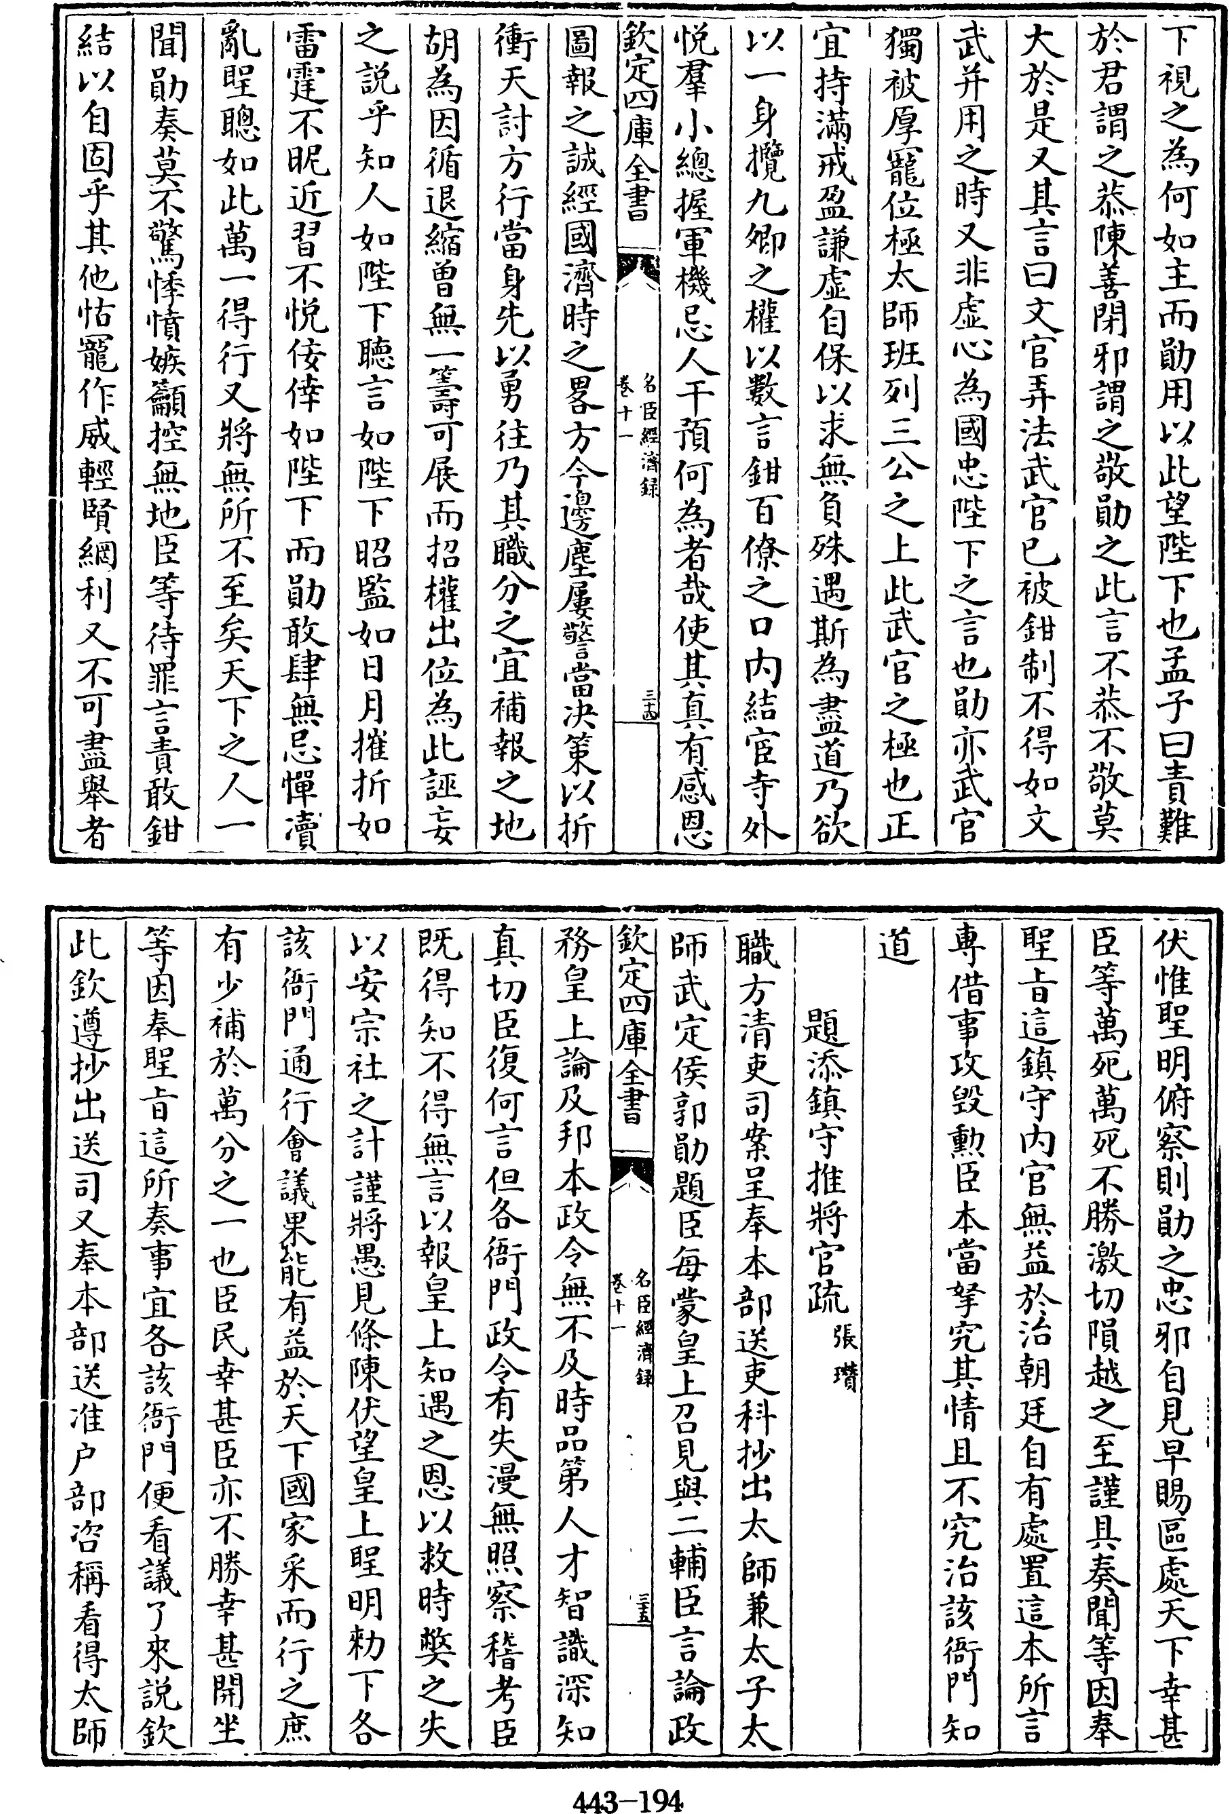 下視之為何如主而勛用以此望陛下也孟子曰責難
於君謂之恭陳善閉邪謂之敬勛之此言不恭不敬莫
大於是又其言曰文官弄法武官已被鉗制不得如文
武并用之時又非虚心為國忠陛下之言也勛亦武官
獨被厚寵位極太師班列三公之上此武官之極也正
宜持滿戒盈謙虚自保以求無負殊遇斯為盡道乃欲
以一身攬九卿之權以數言鉗百僚之口内結宦寺外
悦羣小總握軍機忌人干預何為者哉使其真有感恩
欽定四庫全書
名臣經濟録
卷十一
三十四
圖報之誠經國濟時之畧方今邊塵屢警當决策以折
衝天討方行當身先以勇往乃其職分之宜補報之地
胡為因循退縮曽無一籌可展而招權出位為此誣妄
之説乎知人如陛下聽言如陛下昭監如日月摧折如
雷霆不昵近習不悦佞倖如陛下而勛敢肆無忌憚瀆
亂聖聰如此萬一得行又將無所不至矣天下之人一
聞勛奏莫不驚悸憤嫉籲控無地臣等待罪言責敢鉗
結以自固乎其他怙寵作威輕賢網利又不可盡舉者
伏惟聖明俯察則勛之忠邪自見早賜區處天下幸甚
臣等萬死萬死不勝激切隕越之至謹具奏聞等因奉
聖旨這鎮守内官無益於治朝廷自有處置這本所言
専借事攻毁勲臣本當拏究其情且不究治該衙門知
道
題添鎮守推將官疏
張瓚
職方清吏司案呈奉本部送吏科抄出太師兼太子太
師武定侯郭勛題臣每蒙皇上召見與二輔臣言論政
欽定四庫全書
名臣經濟録
卷十一
三十五
務皇上論及邦本政令無不及時品第人才智識深知
真切臣復何言但各衙門政令有失漫無照察稽考臣
既得知不得無言以報皇上知遇之恩以救時弊之失
以安宗社之計謹將愚見條陳伏望皇上聖明勑下各
該衙門通行會議果能有益於天下國家采而行之庶
有少補於萬分之一也臣民幸甚臣亦不勝幸甚開坐
等因奉聖旨這所奏事宜各該衙門便看議了來説欽
此欽遵抄出送司又奉本部送准户部咨稱看得太師
443-194